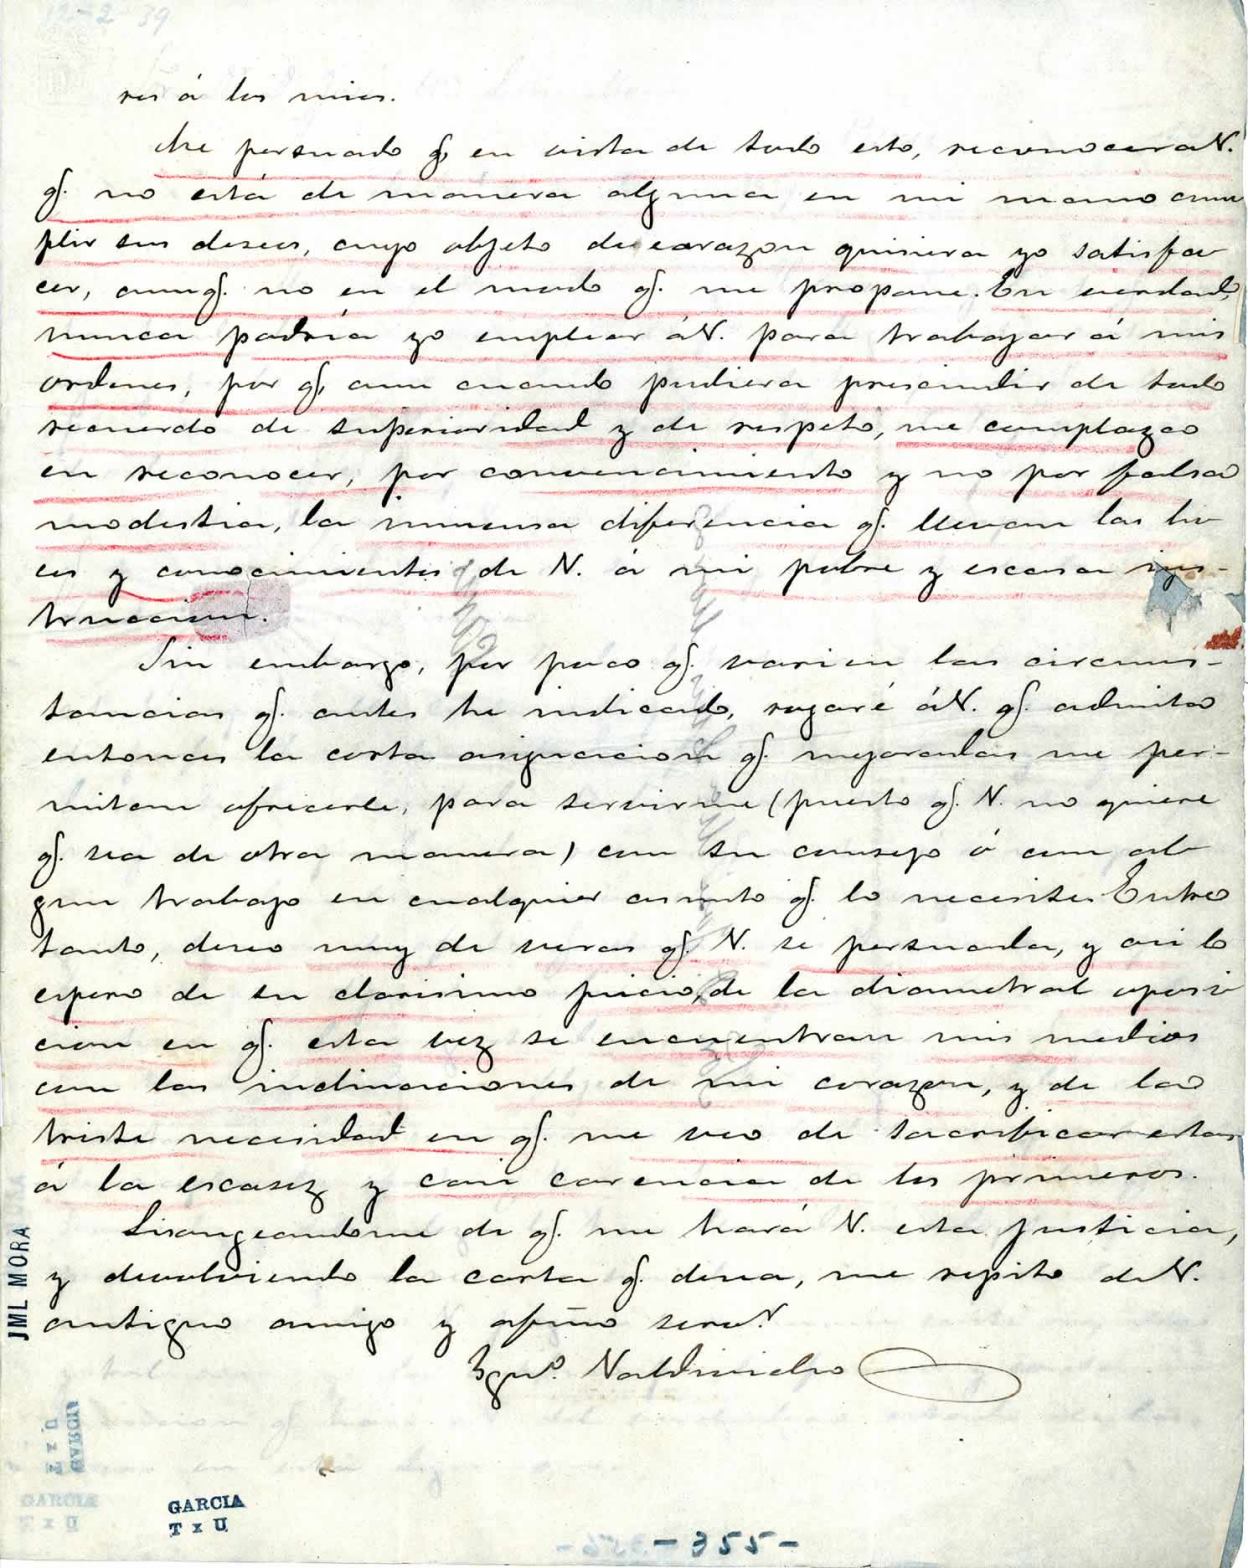 12-2-39
res á los mios.
Me persuado q. en vista de todo esto, reconocera V.
q. no está de manera alguna en mi mano cum
plir sus deseos, cuyo objeto de corazon quisiera yo satisfa
cer, aunq. no en el modo q. me propone. En verdad,
nunca podría yo emplear á V. para trabajar á mis
ordenes, por q. aun cuando pudiera prescindir de todo
recuerdo de superioridad y de respeto, me complazco
en reconocer, por convencimiento y no por falsa
modestia, la inmensa diferencia q. llevan las lu
ces y conocimientos de V. á mi pobre y escasa ins-
truccion.
Sin embargo, por poco q. varien las circuns-
tancias q. antes he indicado, rogaré á V. q. admita
entonces la corta asignacion q. mejoradas me per-
mitan ofrecerle, para servirme (puesto q. V. no quiere
q. sea de otra manera) con su consejo ó con al
gun trabajo en cualquier asunto q. lo necesite. Entre
tanto, deseo muy de veras q. V. se persuada, y asi lo
espero de su clarisimo juicio, de la diametral oposi
cion en q. esta vez se encuentran mis medios
con las inclinaciones de mi corazon, y de la
triste necesidad en q. me veo de sacrificar estas
á la escasez y casi carencia de los primeros.
Lisongeandome de q. me hará V. esta justicia,
y devolviendo la carta q. desea, me repito de V.
antiguo amigo y afmo serv.r
Ygn.o Valdivielso
JML MORA
GARCIA
T x U
GARCIA
T x U
GARCIA
T x U
-355-